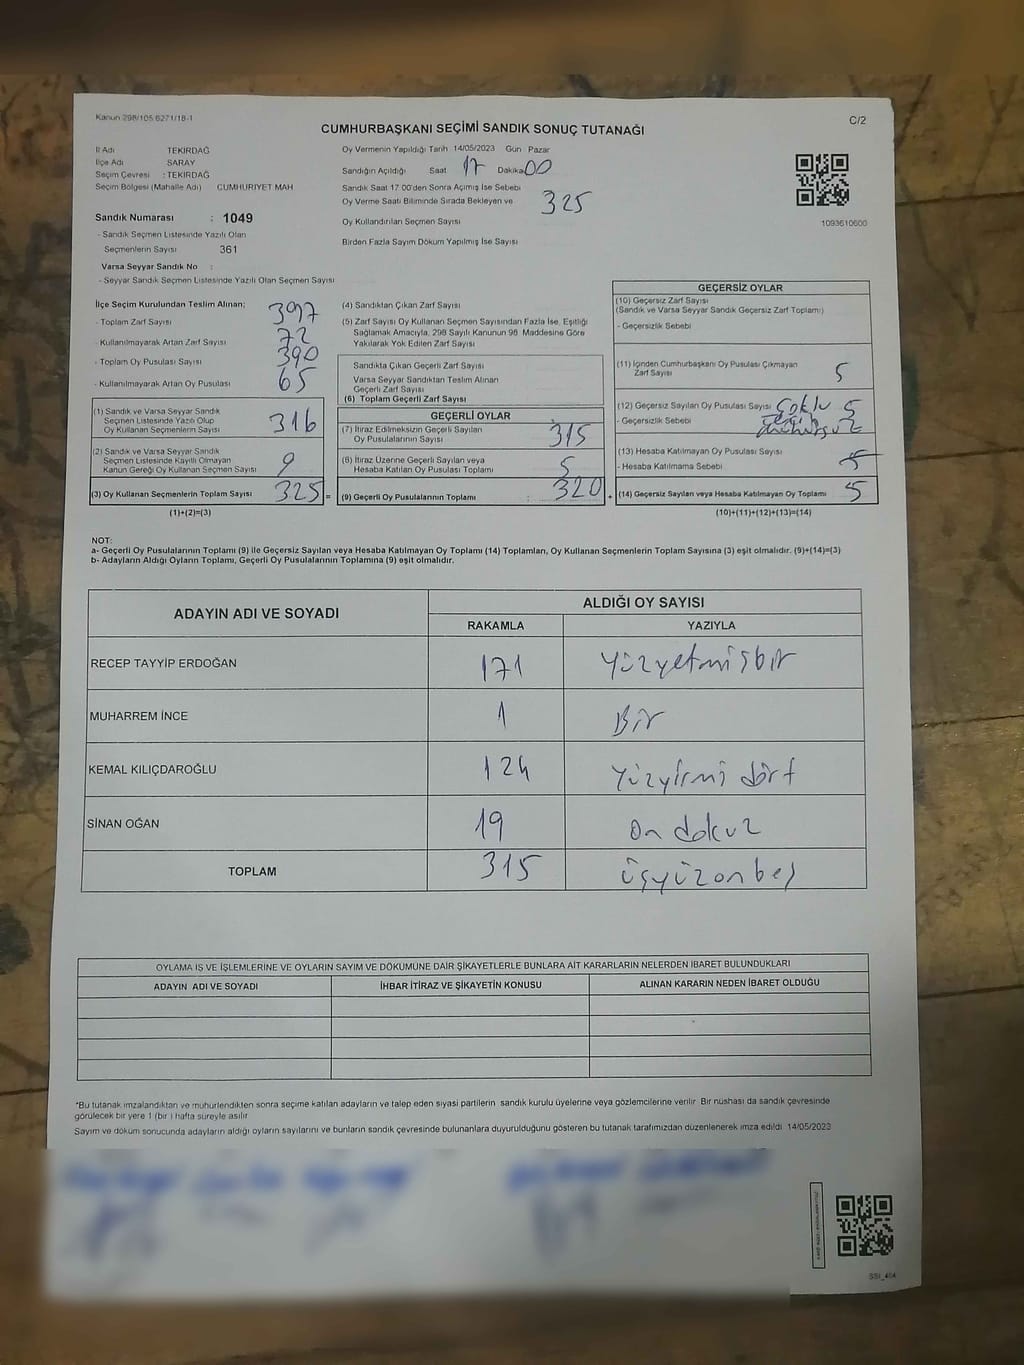 Kanun 298/105 6271/18-1
CUMHURBAŞKANI SEÇİMİ SANDIK SONUÇ TUTANAĞI
C/2
İl Adı TEKİRDAĞ
İlçe Adı SARAY
Seçim Çevresi : TEKİRDAĞ
Seçim Bölgesi (Mahalle Adı) CUMHURİYET MAH
Sandık Numarası : 1049
- Sandık Seçmen Listesinde Yazılı Olan
Seçmenlerin Sayısı 361
Varsa Seyyar Sandık No :
- Seyyar Sandık Seçmen Listesinde Yazılı Olan Seçmen Sayısı
Oy Vermenin Yapıldığı Tarih 14/05/2023 Gün Pazar
Sandığın Açıldığı Saat 17 Dakika 00
Sandık Saat 17 00'den Sonra Açımış İse Sebebi
Oy Verme Saati Bitiminde Sırada Bekleyen ve 325
Oy Kullandırılan Seçmen Sayısı
Birden Fazla Sayım Döküm Yapılmış İse Sayısı
1093610600
İlçe Seçim Kurulundan Teslim Alınan;
- Toplam Zarf Sayısı 397
- Kullanılmayarak Artan Zarf Sayısı 72
- Toplam Oy Pusulası Sayısı 390
- Kullanılmayarak Artan Oy Pusulası 65
(1) Sandık ve Varsa Seyyar Sandık
Seçmen Listesinde Yazılı Olup
Oy Kullanan Seçmenlerin Sayısı 316
(2) Sandık ve Varsa Seyyar Sandık
Seçmen Listesinde Kayıtlı Olmayan
Kanun Gereği Oy Kullanan Seçmen Sayısı 9
(3) Oy Kullanan Seçmenlerin Toplam Sayısı 325 =
(1)+(2)=(3)
(4) Sandıktan Çıkan Zarf Sayısı
(5) Zarf Sayısı Oy Kullanan Seçmen Sayısından Fazla İse, Eşitliği
Sağlamak Amacıyla, 298 Sayılı Kanunun 98. Maddesine Göre
Yakılarak Yok Edilen Zarf Sayısı
Sandıkta Çıkan Geçerli Zarf Sayısı
Varsa Seyyar Sandıktan Teslim Alınan
Geçerli Zarf Sayısı
(6) Toplam Geçerli Zarf Sayısı
GEÇERLİ OYLAR
(7) İtiraz Edilmeksizin Geçerli Sayılan
Oy Pusulalarının Sayısı 315
(8) İtiraz Üzerine Geçerli Sayılan veya
Hesaba Katılan Oy Pusulası Toplamı 5
(9) Geçerli Oy Pusulalarının Toplamı : 320 +
GEÇERSİZ OYLAR
(10) Geçersiz Zarf Sayısı
(Sandık ve Varsa Seyyar Sandık Geçersiz Zarf Toplamı)
- Geçersizlik Sebebi
(11) İçinden Cumhurbaşkanı Oy Pusulası Çıkmayan
Zarf Sayısı 5
(12) Geçersiz Sayılan Oy Pusulası Sayısı Çoklu 5
- Geçersizlik Sebebi mühürsüz
(13) Hesaba Katılmayan Oy Pusulası Sayısı 5
- Hesaba Katılmama Sebebi
(14) Geçersiz Sayılan veya Hesaba Katılmayan Oy Toplamı 5
(10)+(11)+(12)+(13)=(14)
NOT:
a- Geçerli Oy Pusulalarının Toplamı (9) ile Geçersiz Sayılan veya Hesaba Katılmayan Oy Toplamı (14) Toplamları, Oy Kullanan Seçmenlerin Toplam Sayısına (3) eşit olmalıdır. (9)+(14)=(3)
b- Adayların Aldığı Oyların Toplamı, Geçerli Oy Pusulalarının Toplamına (9) eşit olmalıdır.
ADAYIN ADI VE SOYADI
ALDIĞI OY SAYISI
RAKAMLA YAZIYLA
RECEP TAYYİP ERDOĞAN 171 Yüzyetmişbir
MUHARREM İNCE 1 Bir
KEMAL KILIÇDAROĞLU 124 Yüzyirmi dört
SİNAN OĞAN 19 On dokuz
TOPLAM 315 üçyüzonbeş
OYLAMA İŞ VE İŞLEMLERİNE VE OYLARIN SAYIM VE DÖKÜMÜNE DAİR ŞİKAYETLERLE BUNLARA AİT KARARLARIN NELERDEN İBARET BULUNDUKLARI
ADAYIN ADI VE SOYADI İHBAR İTİRAZ VE ŞİKAYETİN KONUSU ALINAN KARARIN NEDEN İBARET OLDUĞU
*Bu tutanak imzalandıktan ve mühürlendikten sonra seçime katılan adayların ve talep eden siyasi partilerin sandık kurulu üyelerine veya gözlemcilerine verilir Bir nüshası da sandık çevresinde
görülecek bir yere 1 (bir ) hafta süreyle asılır
Sayım ve döküm sonucunda adayların aldığı oyların sayılarını ve bunların sandık çevresinde bulunanlara duyurulduğunu gösteren bu tutanak tarafımızdan düzenlenerek imza edildi 14/05/2023